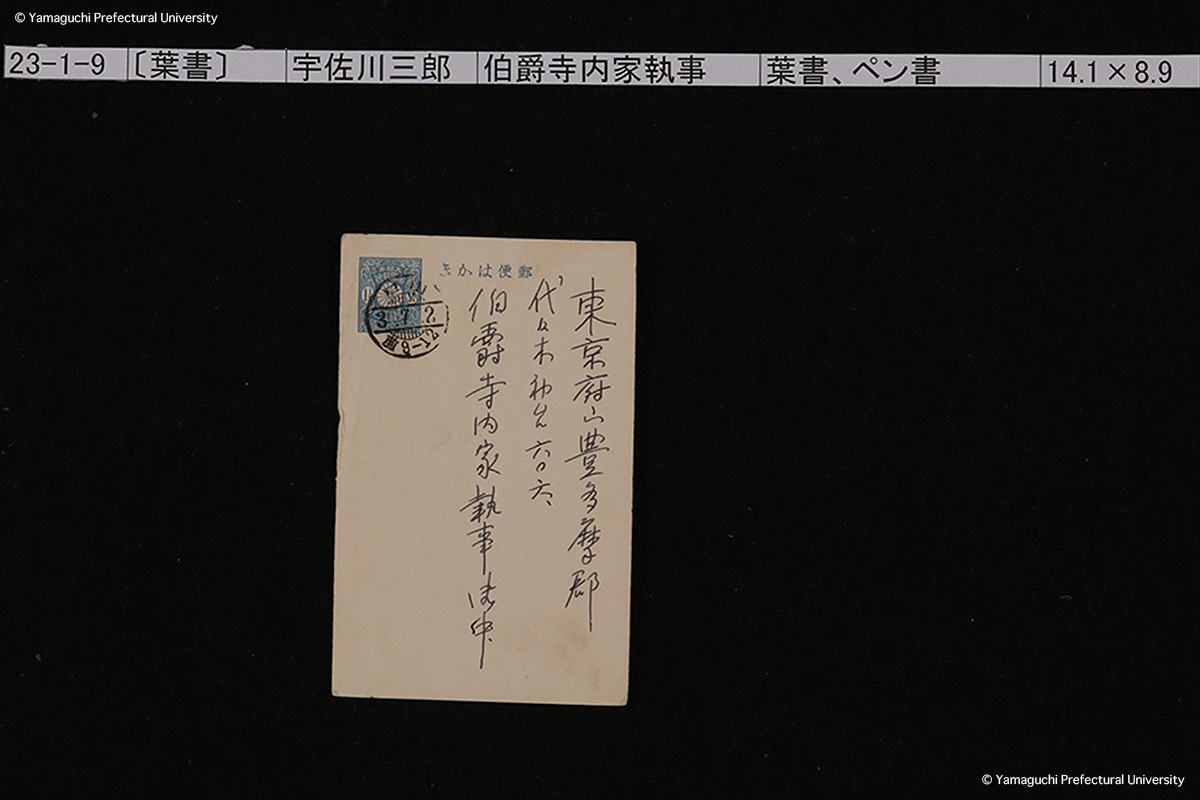 © Yamaguchi Prefectural University
23-1-9 〔葉書〕 宇佐川三郎 伯爵寺内家執事 葉書、ペン書 14.1×8.9
郵便はかき
東京府下豊多摩郡
代々木初台六〇六、
伯爵寺内家執事御中
3.7.2
© Yamaguchi Prefectural University